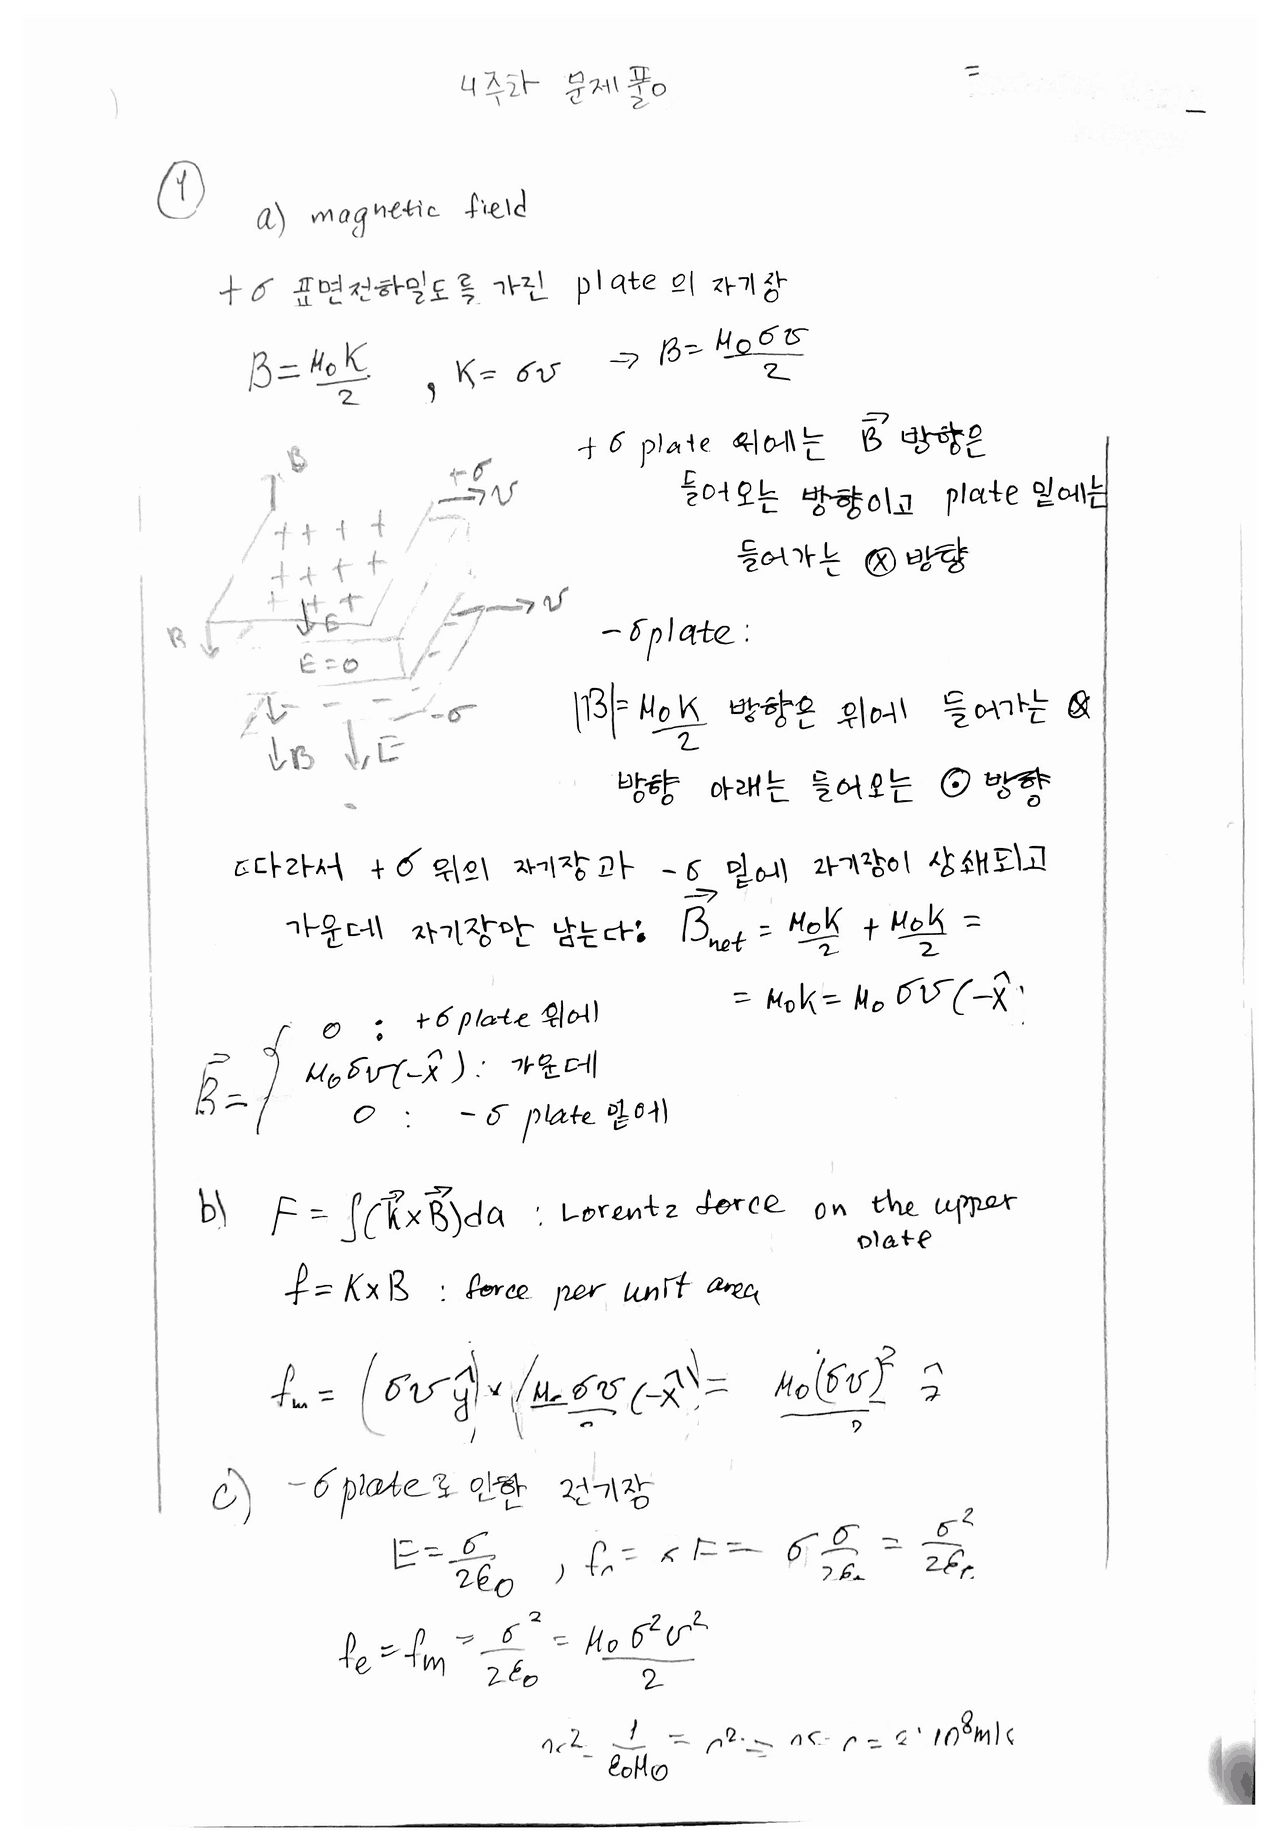 4주차 문제풀이
①
a) magnetic field
+σ 표면전하밀도를 가린 plate의 자기장
B = μ₀K/2 , K = σv → B = μ₀σv/2
+σ plate 위에는 B⃗ 방향은
들어오는 방향이고 plate 밑에는
들어가는 ⊗ 방향
B
+σ
→ v
+ + + +
+ + + +
+ + +
↓ E
→ v
B ↓
E = 0
-σ
↓B ↓E
-σ plate:
|B| = μ₀K/2 방향은 위에 들어가는 ⊗
방향 아래는 들어오는 ⊙ 방향
따라서 +σ 위의 자기장과 -σ 밑에 자기장이 상쇄되고
가운데 자기장만 남는다: B⃗net = μ₀K/2 + μ₀K/2 =
= μ₀K = μ₀σv(-x̂)
B⃗ = { 0 : +σ plate 위에
μ₀σv(-x̂) : 가운데
0 : -σ plate 밑에
b) F = ∫(K⃗×B⃗)da : Lorentz force on the upper
plate
f = K×B : force per unit area
fm = (σvŷ) × (μ₀σv/2 (-x̂)) = μ₀(σv)²/2 ẑ
c) -σ plate로 인한 전기장
E = σ/2ε₀ , fe = σE = σ σ/2ε₀ = σ²/2ε₀
fe = fm = σ²/2ε₀ = μ₀σ²v²/2
v² = 1/ε₀μ₀ = c² ⇒ v = c = 10⁸m/s